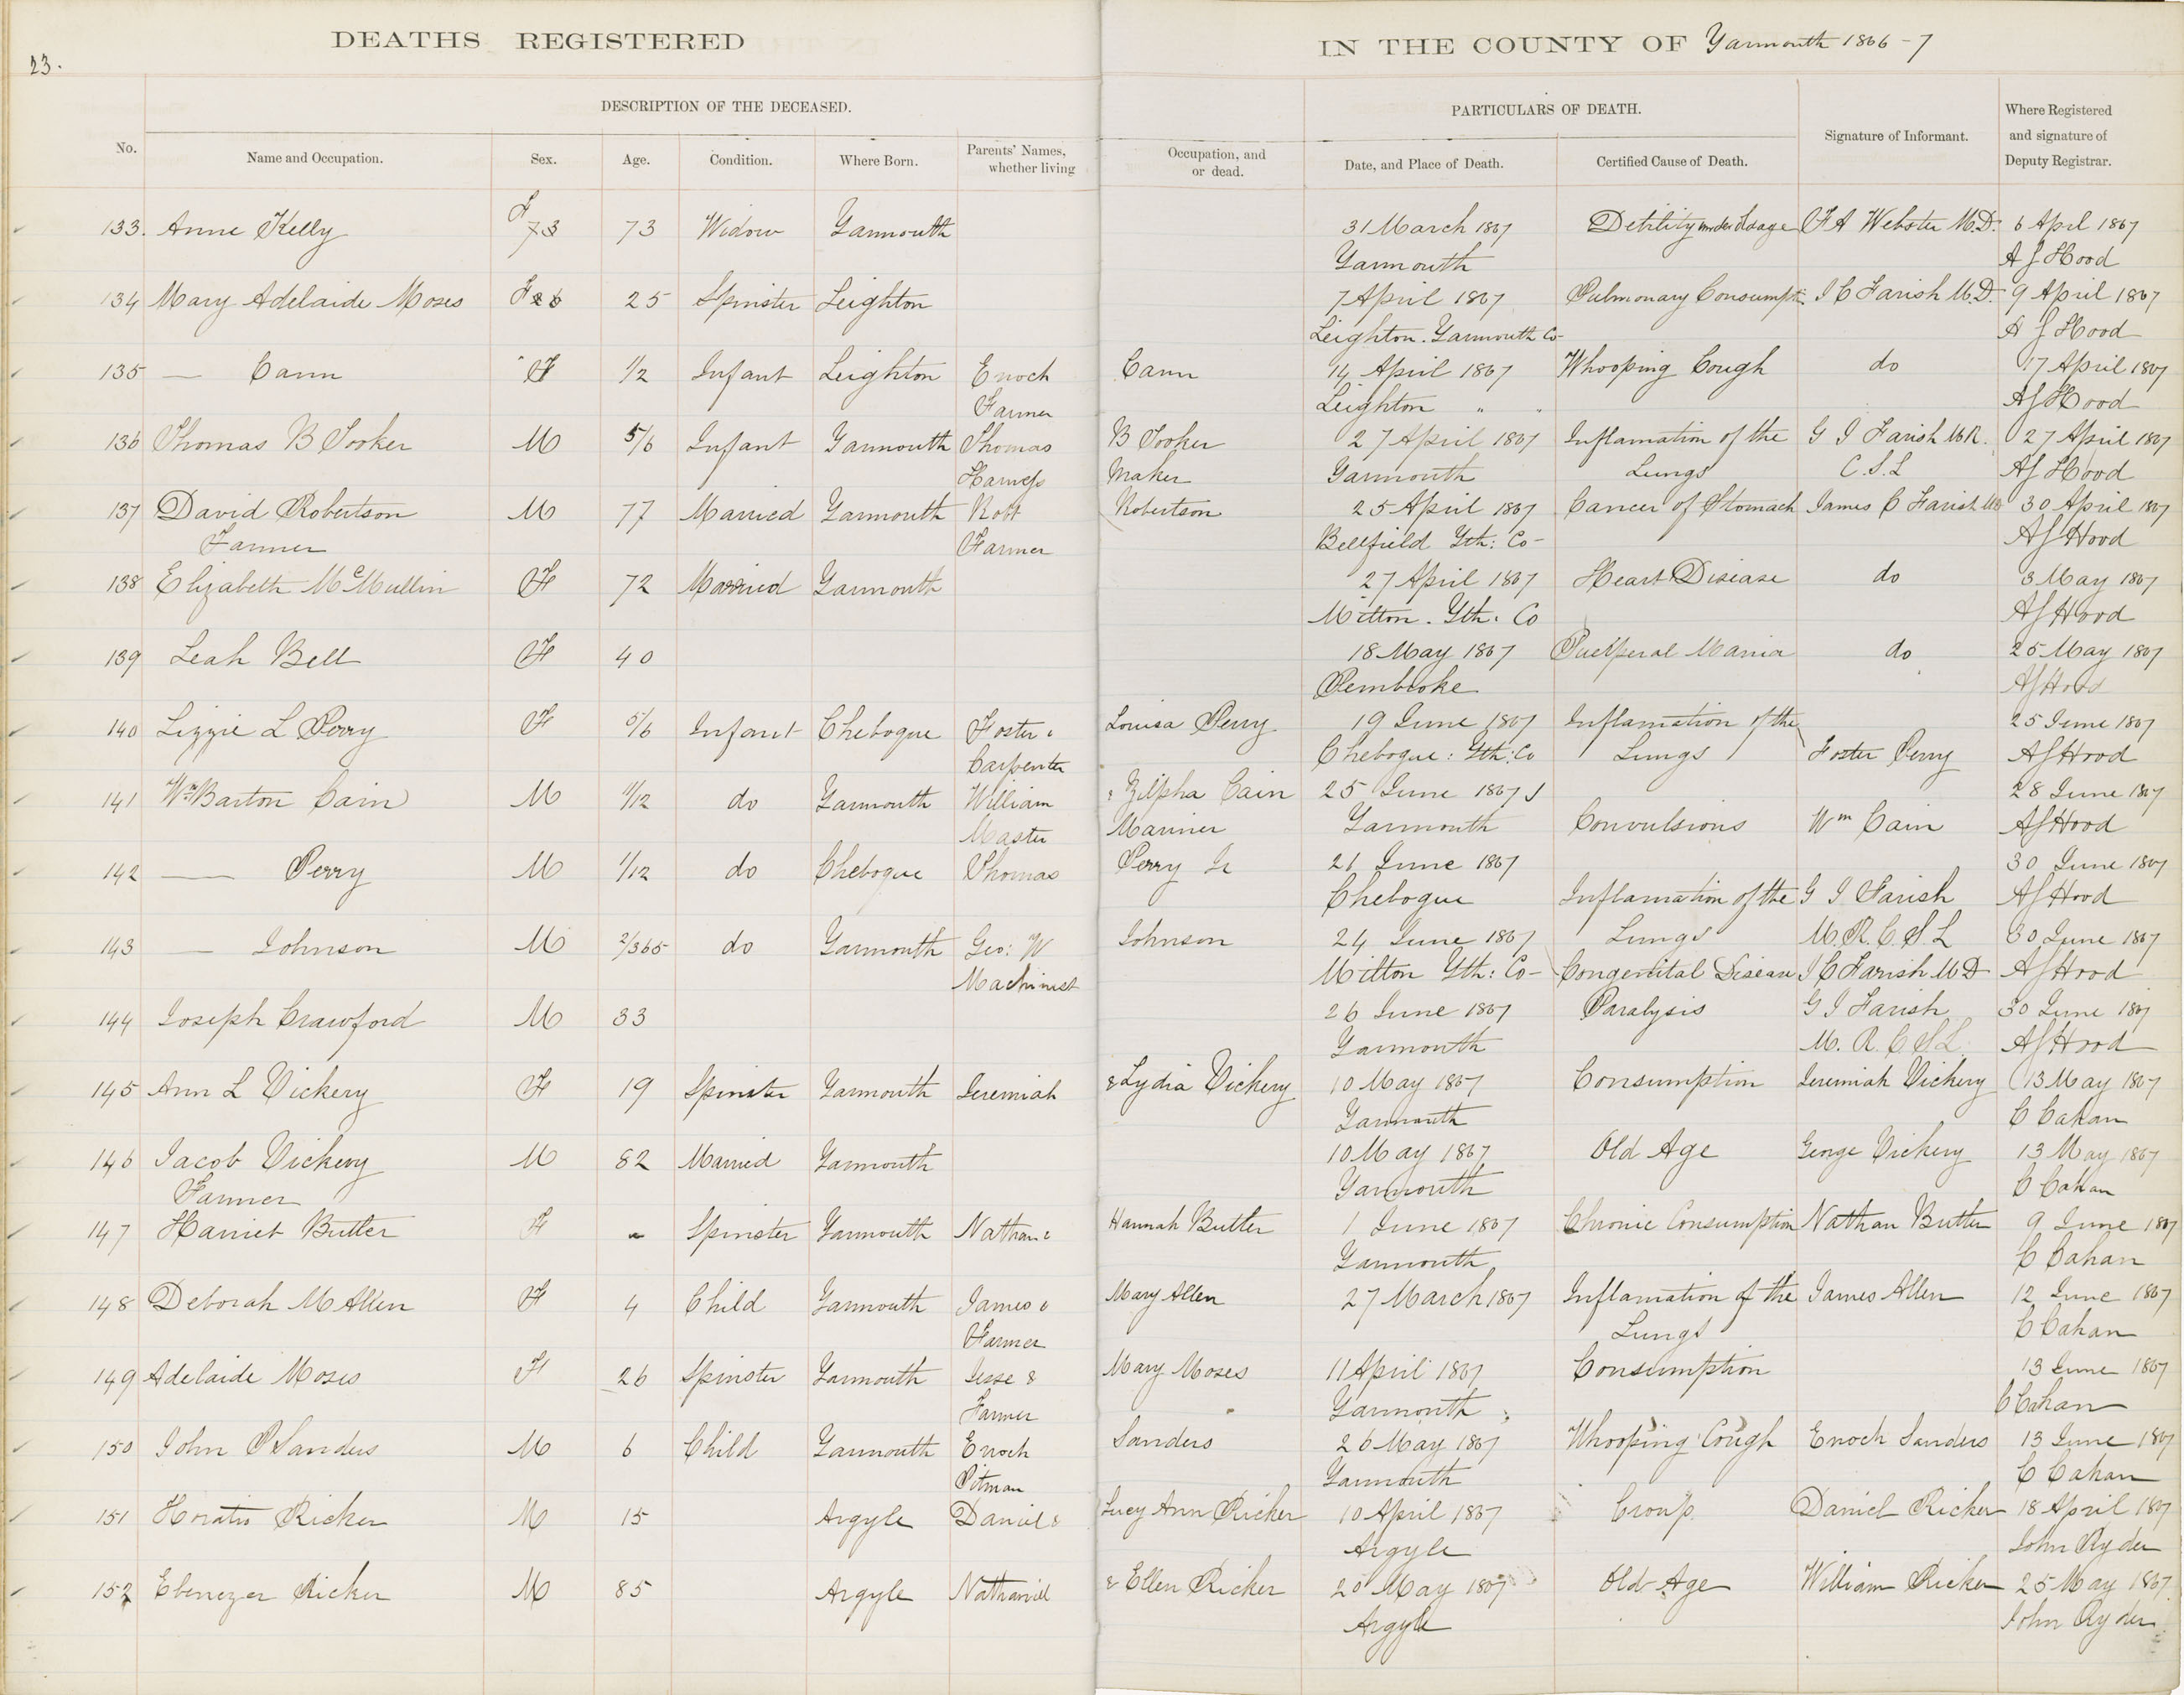 DEATHS REGISTERED IN THE COUNTY OF Yarmouth 1866-7
23.
DESCRIPTION OF THE DECEASED. PARTICULARS OF DEATH.
No. Name and Occupation. Sex. Age. Condition. Where Born. Parents' Names, whether living Occupation, and or dead. Date, and Place of Death. Certified Cause of Death. Signature of Informant. Where Registered and signature of Deputy Registrar.
133. Anne Kelly F 73 73 Widow Yarmouth 31 March 1867 Debility F A Webster M.D. 6 April 1867
Yarmouth A J Hood
134 Mary Adelaide Moses F 26 25 Spinster Leighton 7 April 1867 Pulmonary Consumpt. J C Farish M.D. 9 April 1867
Leighton. Yarmouth Co- A J Hood
135 — Cann F 1/2 Infant Leighton Enoch Cann 14 April 1867 Whooping Cough do 17 April 1867
Farmer Leighton " " A J Hood
136 Thomas B Tooker M 5/6 Infant Yarmouth Thomas B Tooker 27 April 1867 Inflamation of the G J Farish M.R. 27 April 1867
Harness Maker Yarmouth Lungs C.S.L A J Hood
137 David Robertson M 77 Married Yarmouth Robt Robertson 25 April 1867 Cancer of Stomach James C Farish MD 30 April 1867
Farmer Farmer Bellfield Yth: Co- A J Hood
138 Elizabeth McMullin F 72 Married Yarmouth 27 April 1867 Heart Disease do 3 May 1867
Milton. Yth. Co A J Hood
139 Leah Bell F 40 18 May 1867 Puerperal Mania do 25 May 1867
Pembroke A J Hood
140 Lizzie L Perry F 5/6 Infant Chebogue Foster & Louisa Perry 19 June 1867 Inflamation of the 25 June 1867
Carpenter Chebogue: Yth: Co Lungs Foster Perry A J Hood
141 Wm Barton Cain M 11/12 do Yarmouth William & Zilpha Cain 25 June 1867 28 June 1867
Master Mariner Yarmouth Convulsions Wm Cain A J Hood
142 — Perry M 1/12 do Chebogue Thomas Perry Jr 21 June 1867 30 June 1867
Chebogue Inflamation of the G J Farish A J Hood
143 — Johnson M 2/365 do Yarmouth Geo: W Johnson 24 June 1867 Lungs M.R.C.S.L 30 June 1867
Machinist Milton Yth: Co- Congenital Disease J C Farish M D A J Hood
144 Joseph Crawford M 33 26 June 1867 Paralysis G J Farish 30 June 1867
Yarmouth M. R. C S L A J Hood
145 Ann L Vickery F 19 Spinster Yarmouth Jeremiah & Lydia Vickery 10 May 1867 Consumption Jeremiah Vickery 13 May 1867
Yarmouth C Cahan
146 Jacob Vickery M 82 Married Yarmouth 10 May 1867 Old Age George Vickery 13 May 1867
Farmer Yarmouth C Cahan
147 Harriet Butler F - Spinster Yarmouth Nathan & Hannah Butler 1 June 1867 Chronic Consumption Nathan Butler 9 June 1867
Yarmouth C Cahan
148 Deborah M Allen F 4 Child Yarmouth James & Mary Allen 27 March 1867 Inflamation of the James Allen 12 June 1867
Farmer Lungs C Cahan
149 Adelaide Moses F 26 Spinster Yarmouth Jesse & Mary Moses 11 April 1867 Consumption 13 June 1867
Farmer Yarmouth C Cahan
150 John P Sanders M 6 Child Yarmouth Enoch Sanders 26 May 1867 Whooping Cough Enoch Sanders 13 June 1867
Pitman Yarmouth C Cahan
151 Horatio Ricker M 15 Argyle Daniel & Lucy Ann Ricker 10 April 1867 Croup. Daniel Ricker 18 April 1867
Argyle John Ryder
152 Ebenezer Ricker M 85 Argyle Nathaniel & Ellen Ricker 20 May 1867 Old Age William Ricker 25 May 1867
Argyle John Ryder